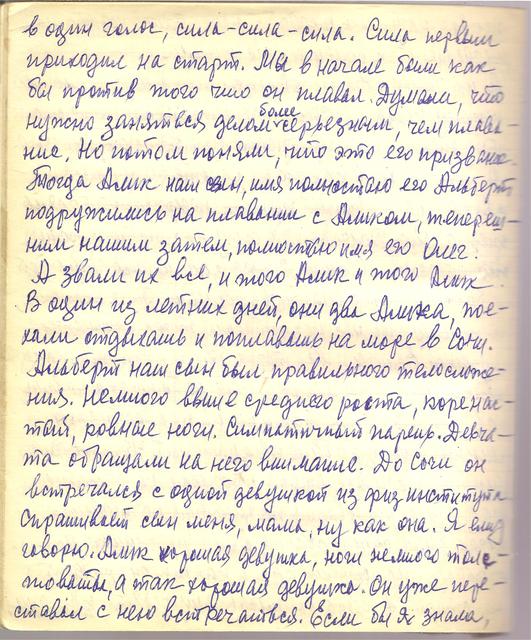 в один голос, сила-сила-сила. Сила первым
приходил на старт. Мы в начале были как
бы против того что он плавал. Думали, что
нужно заняться делом более серьезным, чем плава-
ние. Но потом поняли, что это его призвание.
Тогда Алик наш сын, имя полностью его Альберт
подружились на плавании с Аликом, тепереш-
ним нашим зятем, полностью имя его Олег.
А звали их все, и того Алик и того Алик.
В один из летних дней, они два Алика, пое-
хали отдыхать и поплавать на море в Сочи.
Альберт наш сын был правильного телосложе-
ния. Немного выше среднего роста, коренас-
тый, ровные ноги. Симпатичный парень. Девча-
та обращали на него внимание. До Сочи он
встречался с одной девушкой из физ института
Спрашивает сын меня, мама, ну как она. Я ему
говорю. Алик хорошая девушка, ноги немного толс-
товаты, а так хорошая девушка. Он уже пере-
ставал с нею встречаться. Если бы я знала,